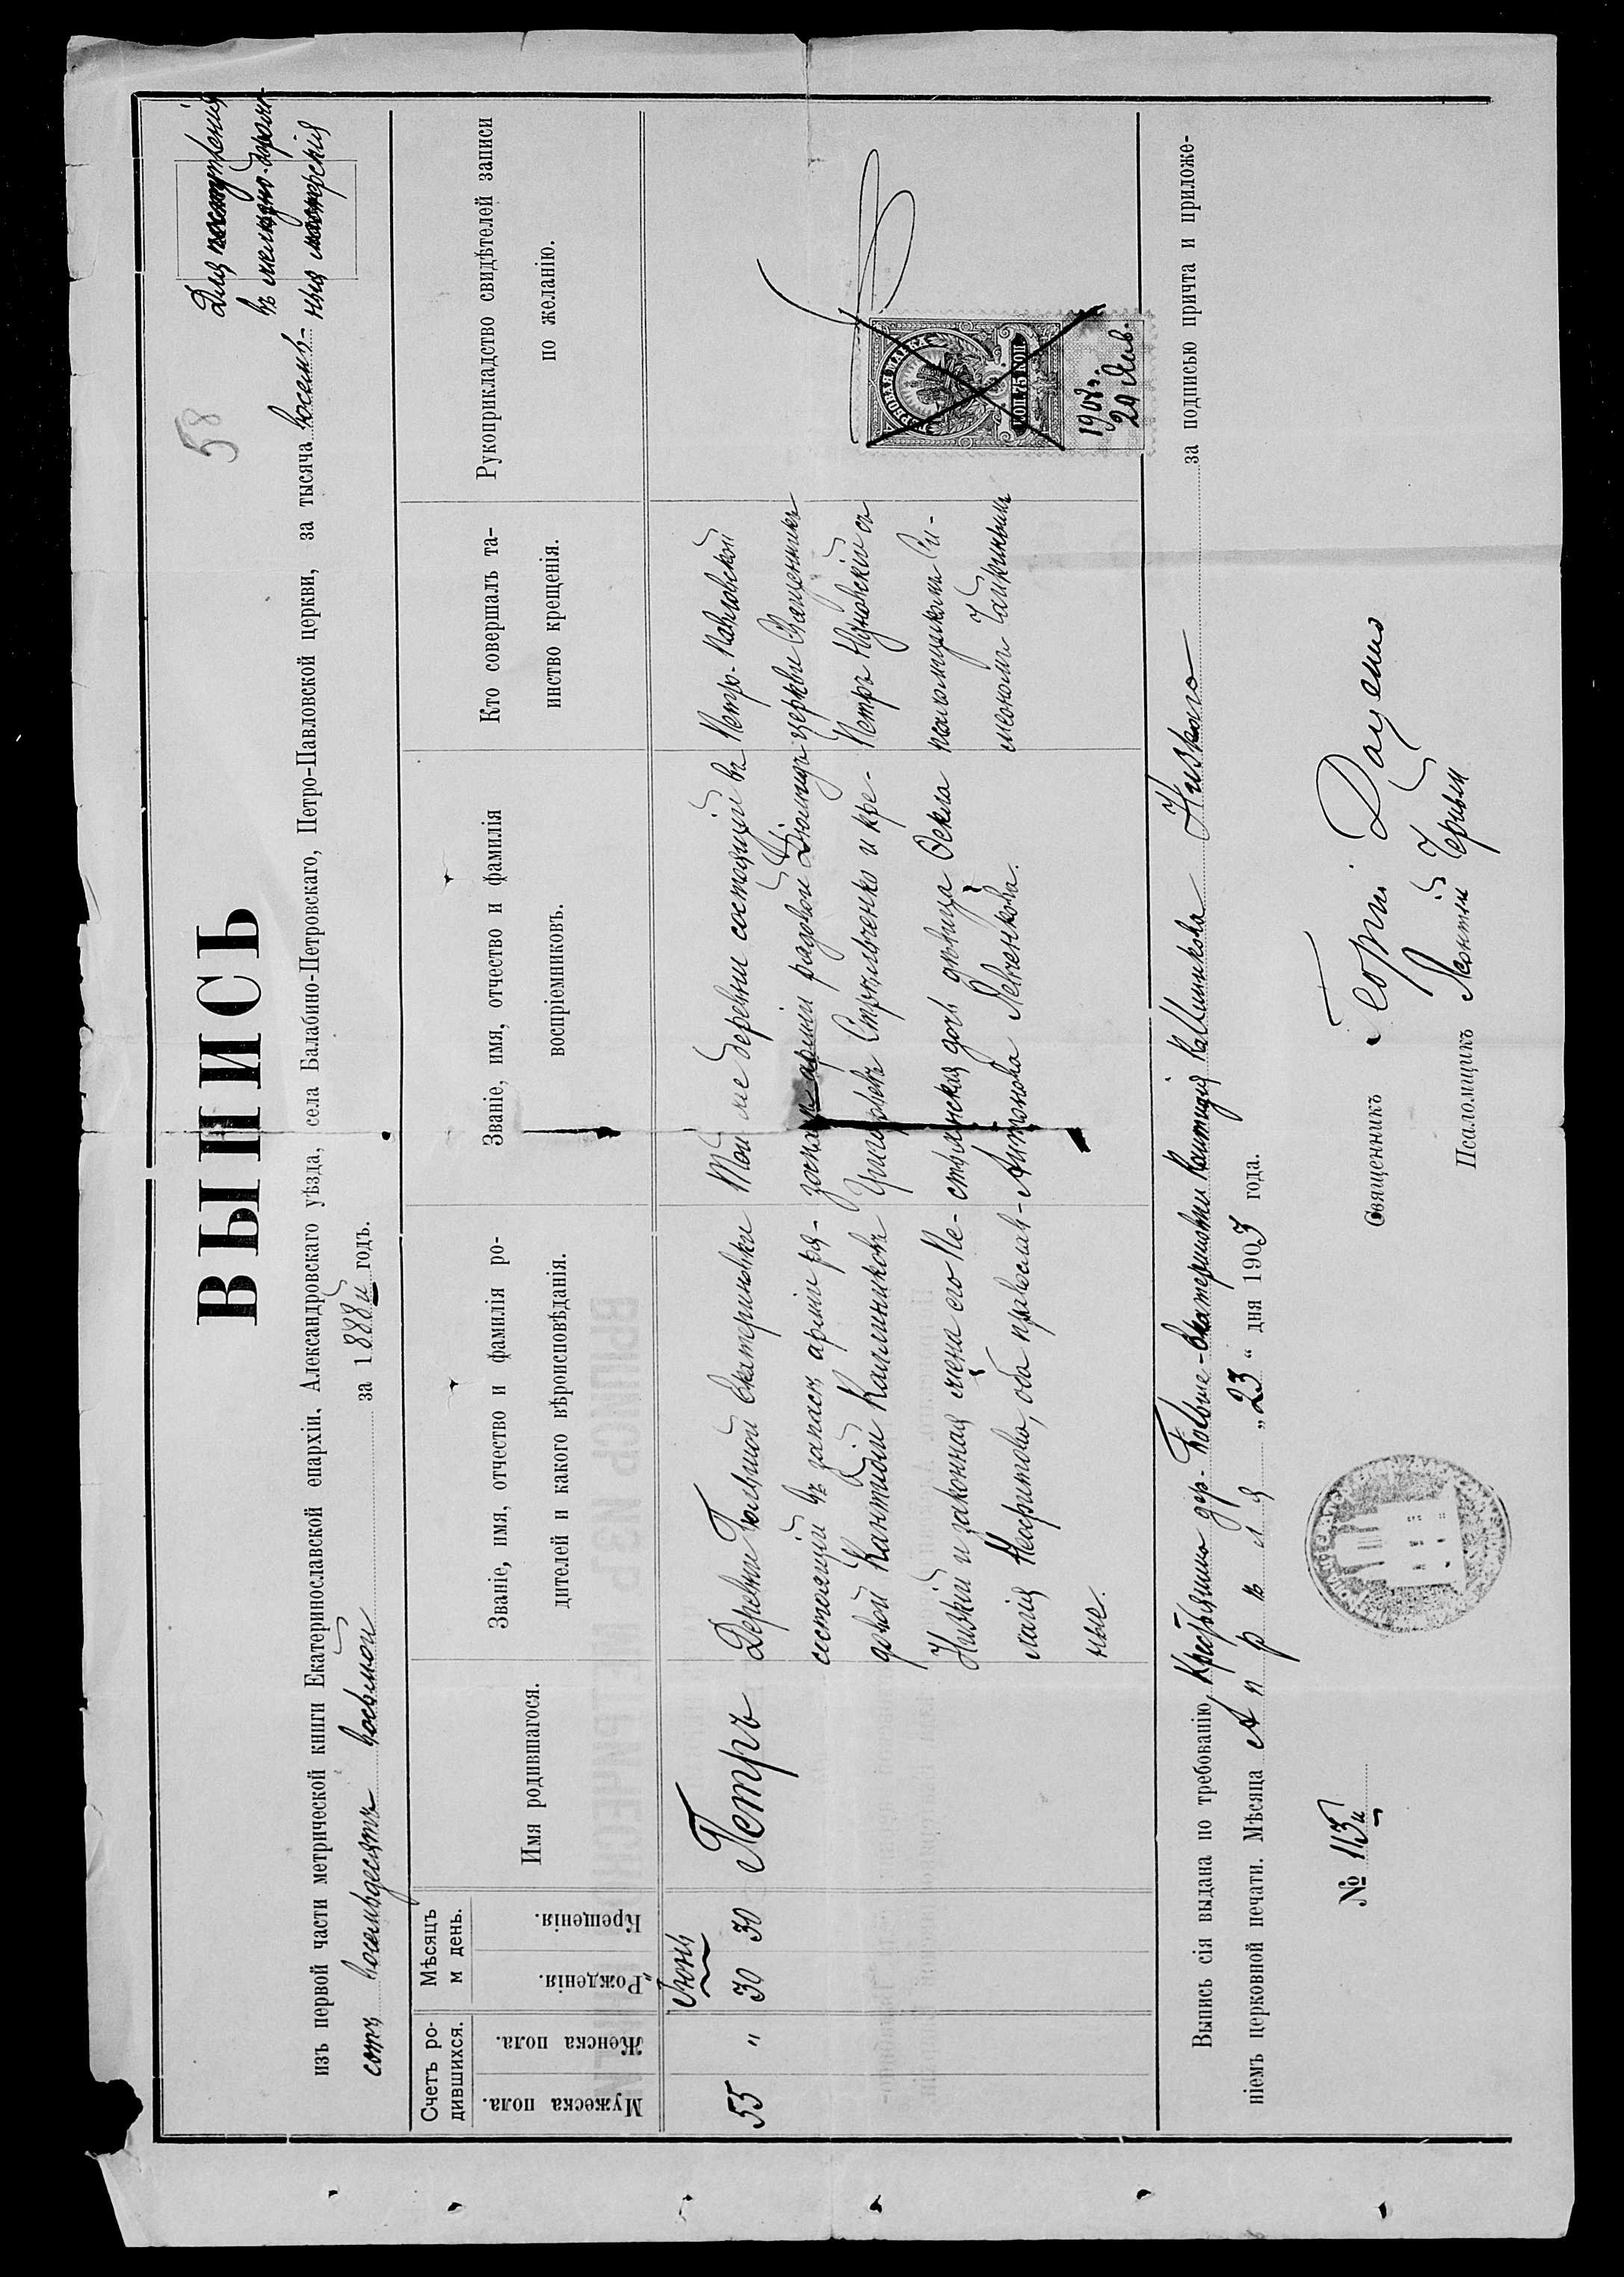 58
Для поступленія
въ желѣзно-дорож-
ныя мастерскія
ВЫПИСЬ
изъ первой части метрической книги Екатеринославской епархіи, Александровскаго уѣзда, села Балабино-Петровскаго, Петро-Павловской церкви, за тысяча восемь-
сотъ восемьдесятъ восьмой за 1888й годъ.
Счетъ ро-
дившихся.
Мужеска пола.
Женска пола.
Мѣсяцъ
и день.
Рожденія.
Крещенія.
Имя родившагося.
Званіе, имя, отчество и фамилія ро-
дителей и какого вѣроисповѣданія.
Званіе, имя, отчество и фамилія
воспріемниковъ.
Кто совершалъ та-
инство крещенія.
Рукоприкладство свидѣтелей записи
по желанію.
Іюнь
55 " 30 30
Петръ
Деревни Большой Екатериновки
состоящій въ запасѣ арміи ря-
довой Калинниковъ
Низкій и законная жена его Пе-
лагія, оба православ-
ные.
Той же деревни состоящій въ
запасѣ арміи рядовой
Григорьевъ Стрѣльченко и кре-
стьянская дочь дѣвица Ѳекла
Антонова Левченкова.
Петро-Павловской
церкви Священникъ
Петръ съ
псаломщикомъ Си-
меономъ Чайкинымъ
КОП. 75 КОП.
1908 г.
20 Янв.
Выпись сія выдана по требованію крестьянина дер. Больше-Екатериновки Калинникова Низкаго за подписью причта и приложе-
ніемъ церковной печати. Мѣсяца Апрѣля „23“ дня 1903 года.
№ 113й
Священникъ Георгій Даценко
Псаломщикъ Леонтій Черный